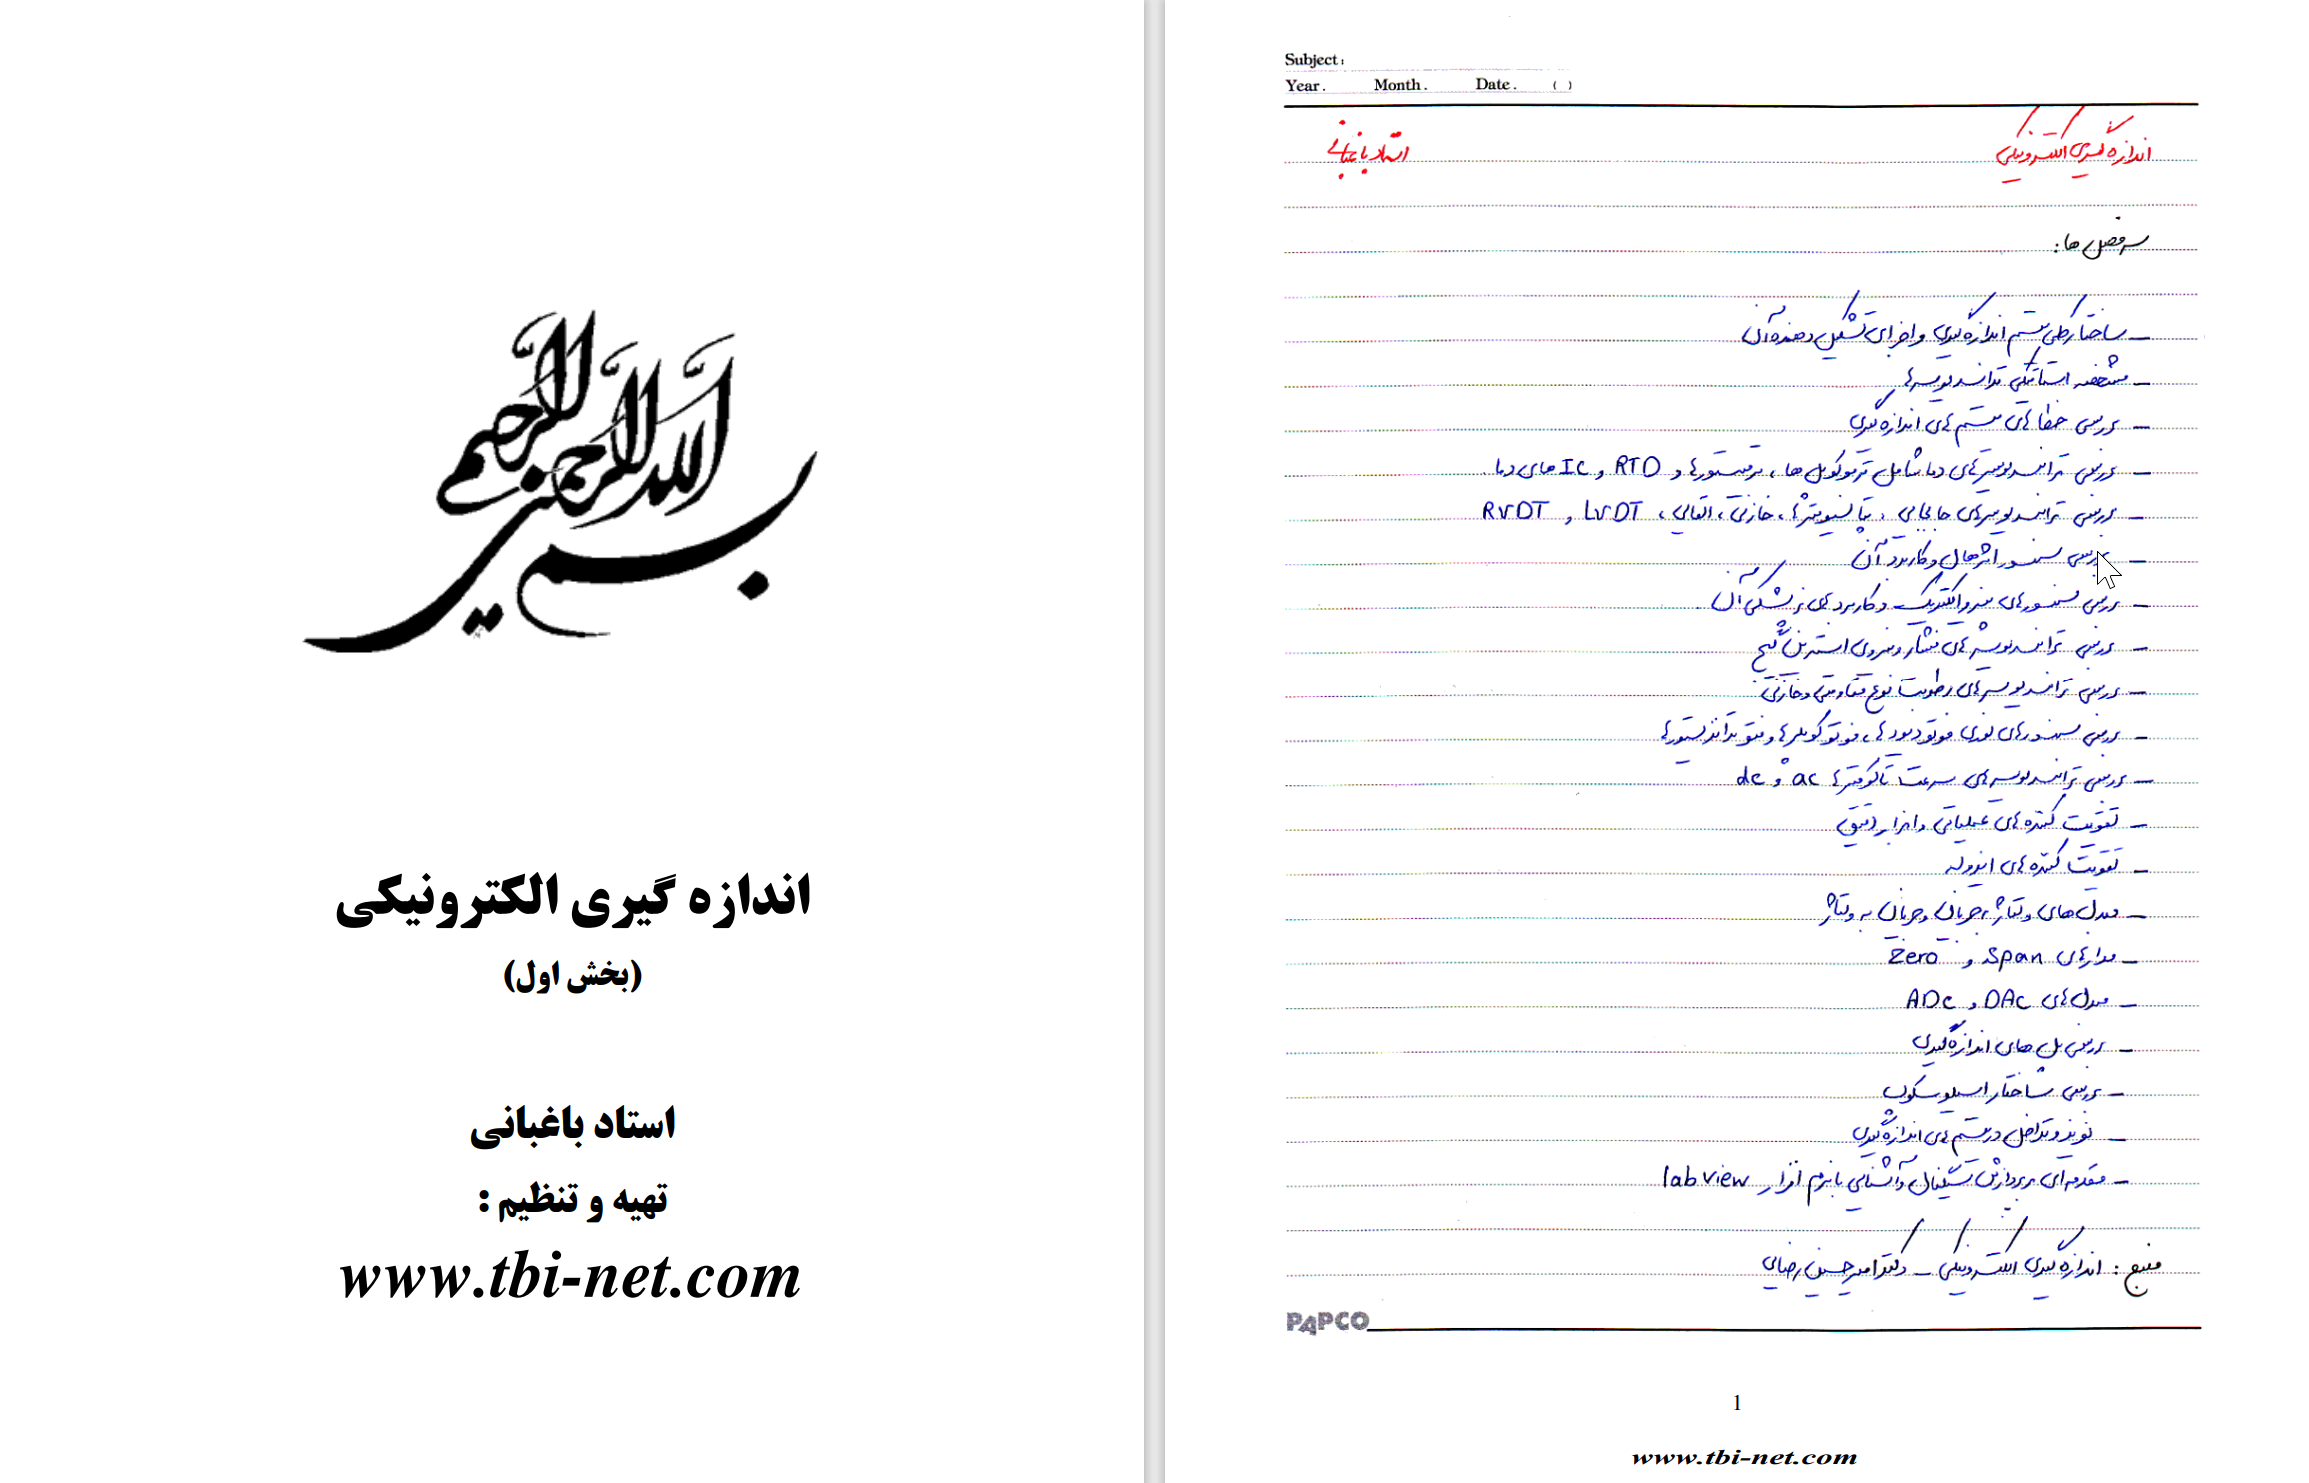 بسم الله الرحمن الرحیم
اندازه گیری الکترونیکی
(بخش اول)
استاد باغبانی
تهیه و تنظیم :
www.tbi-net.com
Subject:
Year. Month. Date. ( )
اندازه گیری الکترونیکی استاد باغبانی
سرفصل ها:
- ساختار کلی سیستم اندازه گیری و اجزای تشکیل دهنده آن
- مشخصه استاتیکی ترانسدیوسرها
- بررسی خطاهای سیستم های اندازه گیری
- بررسی ترانسدیوسرهای دما شامل ترموکوپل ها، ترمیستورها و RTD و IC های دما
- بررسی ترانسدیوسرهای جابجایی، پتانسیومترها، خازنی، القایی، LVDT و RVDT
- بررسی سنسور اثر هال و کاربرد آن
- بررسی سنسورهای پیزوالکتریک و کاربردهای پزشکی آن
- بررسی ترانسدیوسرهای فشار و نیروی استرین گیج
- بررسی ترانسدیوسرهای رطوبت نوع مقاومتی و خازنی
- بررسی سنسورهای نوری فوتودیودها، فوتوکوپلرها و فتوترانزیستورها
- بررسی ترانسدیوسرهای سرعت تاکومترها ac و dc
- تقویت کننده های عملیاتی و ابزار دقیق
- تقویت کننده های ایزوله
- مبدل های ولتاژ به جریان و جریان به ولتاژ
- مدارهای Span و Zero
- مبدل های DAC و ADC
- بررسی پل های اندازه گیری
- بررسی ساختار اسیلوسکوپ
- نویز و تداخل در سیستم های اندازه گیری
- مقدمه ای بر پردازش سیگنال و آشنایی با نرم افزار labview
منبع : اندازه گیری الکترونیکی - دکتر امیرحسین رضایی
PAPCO
1
www.tbi-net.com